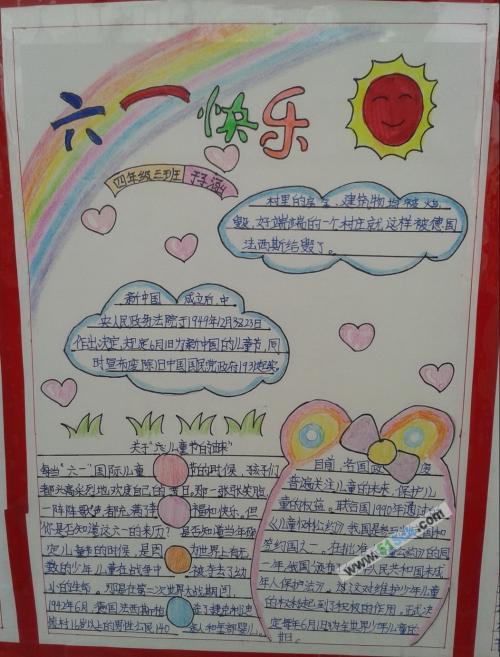 六一快乐
四年级三班
村里的房舍、建筑物均被烧
毁,好端端的一个村庄就这样被德国
法西斯给毁了。
新中国 成立后,中
央人民政务法院于1949年12月23日
作出决定,规定6月1日为新中国的儿童节,同
时宣布废除旧中国国民党政府1931
关于“六一儿童节的由来”
每当“六一”国际儿童 节的时候,孩子们
都兴高采烈地欢度自己的节日,那一张张笑脸
一阵阵歌声都充满 幸福和快乐。但
你是否知道这六一的来历? 是否知道当年确
定儿童节的时候,是因 为世界上有无
数的少年儿童在战争中 被夺去了幼
小的生命。那是在第二次世界大战期间,
1942年6月,德国法西斯枪 杀了捷克利迪
策村16岁以上的男性公民140 余人和全部婴儿。
目前,各国
普遍关注儿童的未来,保护儿
童的权益。联合国1990年通过
《儿童权利公约》,我国是参与
等约国之一。在批准 公约的同
年,我国颁布 人民共和国未成
年人保护法》。对 这对维护少年儿童
的权利起到了积极的作用,正式决
定每年6月1日为全世界少年儿童的
节日。
www.51
.com